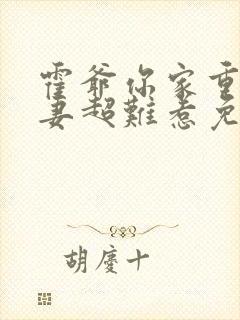 霍爷你家重
妻超難惹免
胡慶十